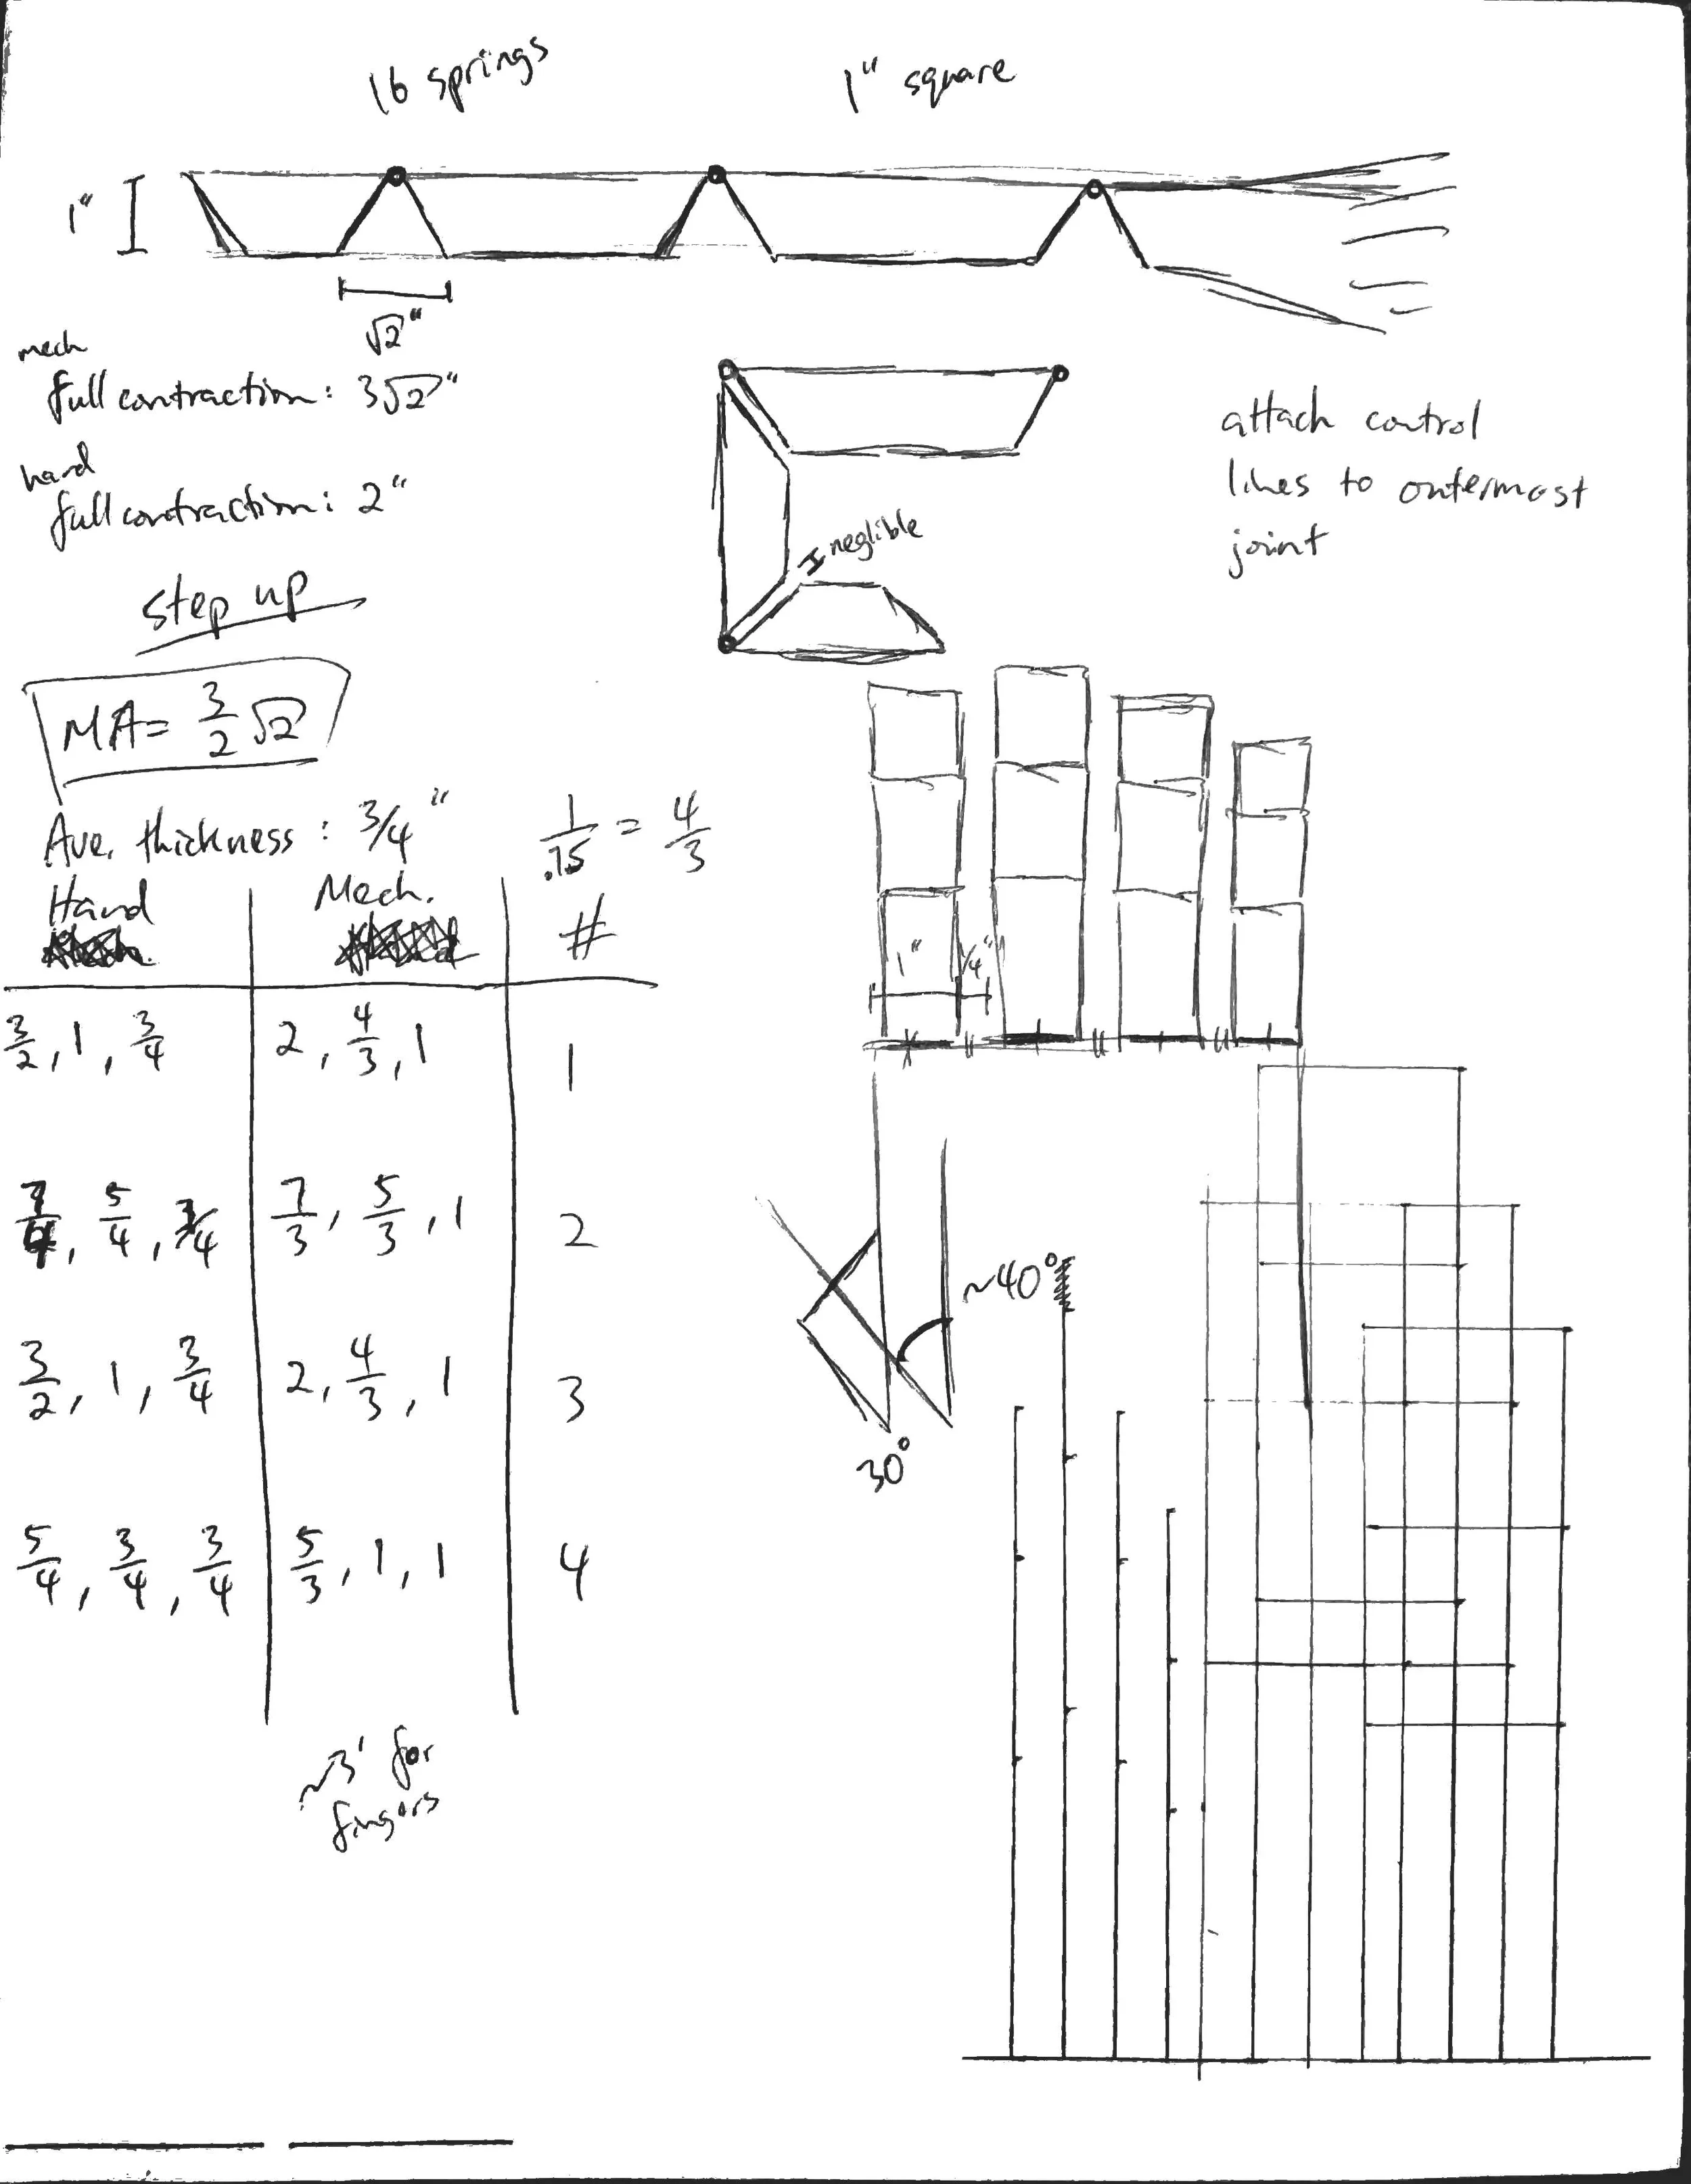 16 springs
1" square
1"
√2"
mech
full contraction: 3√2"
hand
full contraction: 2"
attach control
lines to outermost
joint
neglible
step up
MA= 3/2 √2
Ave. thickness: 3/4"
1/.75 = 4/3
Hand
Mech.
#
3/2, 1, 3/4
2, 4/3, 1
1
5/4, 3/4
7/3, 5/3, 1
2
3/2, 1, 3/4
2, 4/3, 1
3
5/4, 3/4, 3/4
5/3, 1, 1
4
~3' for
fingers
1"
1/4"
~40°
30°